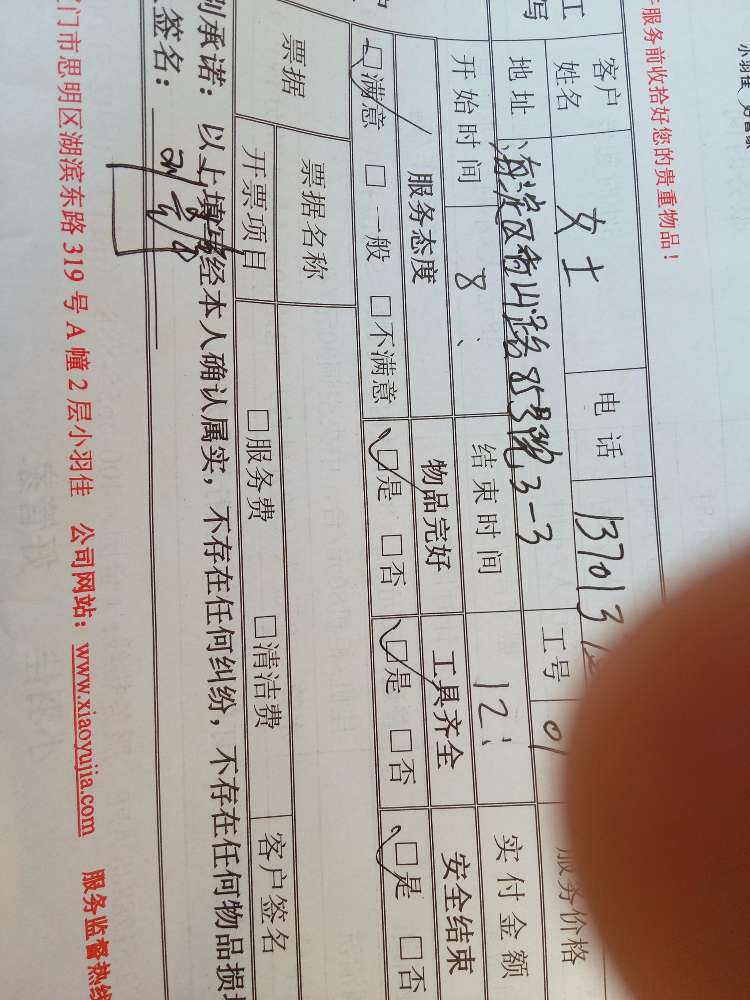 小羽佳
服务前收拾好您的贵重物品！
工
写
客户姓名 女士 电话 137013
地址 海淀区香山路85号院3-3 工号 01 服务价格
开始时间 8、 结束时间 12: 实付金额
服务态度 物品完好 工具齐全 安全结束
□满意 □一般 □不满意 □是 □否 □是 □否 □是 □否
票据 票据名称
开票项目 □服务费 □清洁费 客户签名
承诺：以上填写经本人确认属实，不存在任何纠纷，不存在任何物品损
签名：
门市思明区湖滨东路 319 号 A 幢 2 层小羽佳 公司网站：www.xiaoyujia.com 服务监督热线